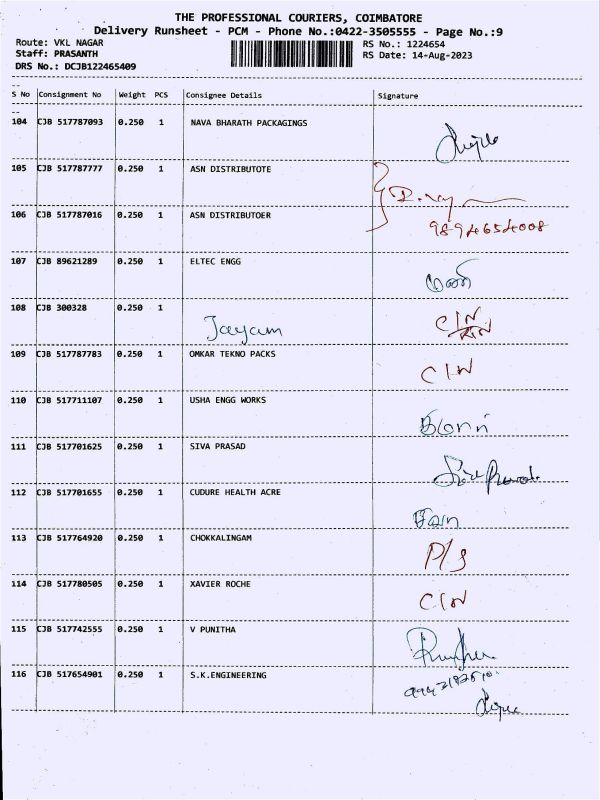 THE PROFESSIONAL COURIERS, COIMBATORE
Delivery Runsheet - PCM - Phone No.:0422-3505555 - Page No.:9
Route: VKL NAGAR RS No.: 1224654
Staff: PRASANTH RS Date: 14-Aug-2023
DRS No.: DCJB122465409
S No Consignment No Weight PCS Consignee Details Signature
104 CJB 517787093 0.250 1 NAVA BHARATH PACKAGINGS
105 CJB 517787777 0.250 1 ASN DISTRIBUTOTE
106 CJB 517787016 0.250 1 ASN DISTRIBUTOER 9894654008
107 CJB 89621289 0.250 1 ELTEC ENGG
108 CJB 300328 0.250 1 Jayam C/N
109 CJB 517787783 0.250 1 OMKAR TEKNO PACKS C/N
110 CJB 517711107 0.250 1 USHA ENGG WORKS
111 CJB 517701625 0.250 1 SIVA PRASAD
112 CJB 517701655 0.250 1 CUDURE HEALTH ACRE
113 CJB 517764920 0.250 1 CHOKKALINGAM P/S
114 CJB 517780505 0.250 1 XAVIER ROCHE C/N
115 CJB 517742555 0.250 1 V PUNITHA
116 CJB 517654901 0.250 1 S.K.ENGINEERING